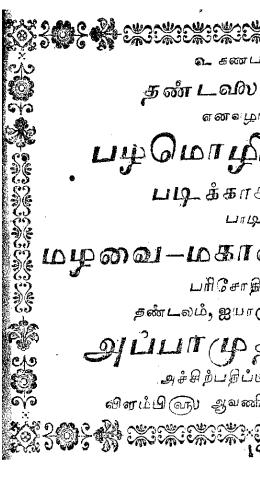 உ கணப
தண்டலை
எனவழ
பழமொழி
படிக்கா
பாடி
மழவை–மகா
பரிசோதி
தண்டலம், ஐயா
அப்பாமு
அச்சிற்பதிப்
விளம்பி௵ ஆவணி